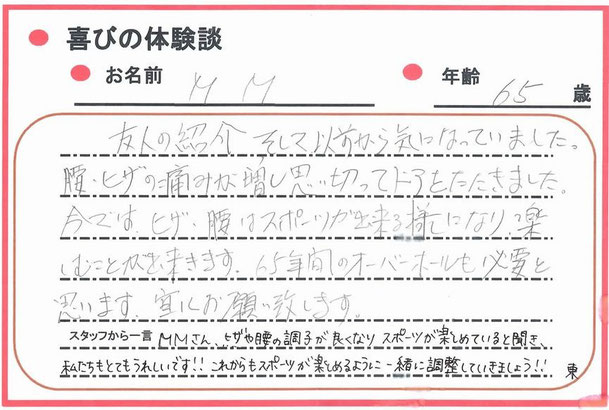 喜びの体験談
お名前 M M 年齢 65 歳
友人の紹介 そして以前から気になっていました。
腰・ヒザの痛みが増し思い切ってドアをたたきました。
今では、ヒザ、腰はスポーツが出来る様になり、楽
しむことが出来ます。65年間のオーバーホールも必要と
思います。宜しくお願い致します。
スタッフから一言 MMさん、ヒザや腰の調子が良くなり スポーツが楽しめていると聞き、
私たちもとてもうれしいです!! これからもスポーツが楽しめるように一緒に調整していきましょう!! 東